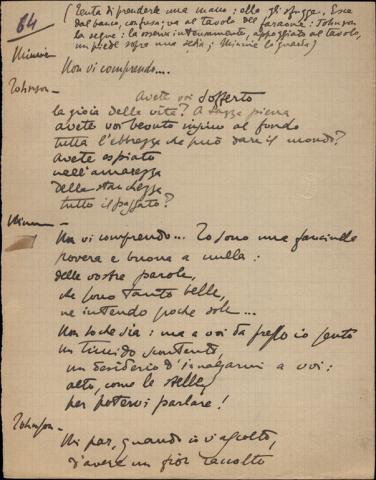 64
(Tenta di prenderle una mano: ella gli sfugge. Esce
dal banco, confusa, va al tavolo del faraone: Johnson
la segue: la osserva intensamente, appoggiato al tavolo,
un piede sopra una sedia; Minnie lo guarda)
Minnie—
Non vi comprendo....
Johnson—
Avete voi sofferto
la gioia della vita? A tazza piena
avete voi bevuto insino al fondo
tutta l'ebbrezza che può dare il mondo?
Avete espiato
nell'amarezza
della stanchezza
tutto il passato?
Minnie—
Non vi comprendo... Io sono una fanciulla
povera e buona a nulla:
delle vostre parole,
che sono tanto belle,
ne intendo poche sole...
Non so che sia: ma a voi da presso io sento
un timido scontento,
un desiderio d'innalzarmi a voi:
alto, come le stelle,
per potervi parlare!
Johnson—
Mi par, quando io v'ascolto,
d'avere un fior raccolto